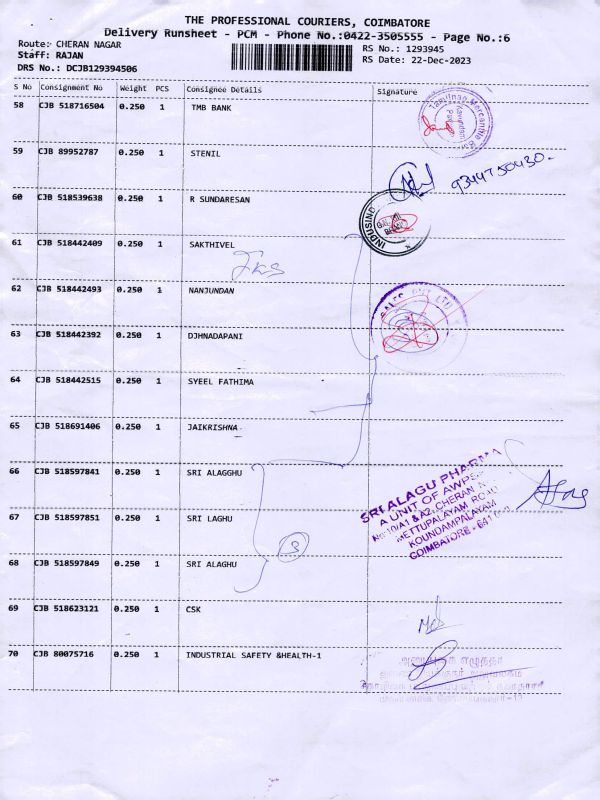 THE PROFESSIONAL COURIERS, COIMBATORE
Delivery Runsheet - PCM - Phone No.:0422-3505555 - Page No.:6
Route: CHERAN NAGAR
RS No.: 1293945
Staff: RAJAN
RS Date: 22-Dec-2023
DRS No.: DCJB129394506
S No Consignment No Weight PCS Consignee Details Signature
58 CJB 518716504 0.250 1 TMB BANK
59 CJB 89952787 0.250 1 STENIL
9344750430-
60 CJB 518539638 0.250 1 R SUNDARESAN
INDUSIND
61 CJB 518442409 0.250 1 SAKTHIVEL
62 CJB 518442493 0.250 1 NANJUNDAN
63 CJB 518442392 0.250 1 DJHNADAPANI
64 CJB 518442515 0.250 1 SYEEL FATHIMA
65 CJB 518691406 0.250 1 JAIKRISHNA
66 CJB 518597841 0.250 1 SRI ALAGGHU
SRI ALAGU PHARMA
A UNIT OF
No: 10/A1 & A2, CHERAN
METTUPALAYAM ROAD
KOUNDAMPALAYAM
COIMBATORE - 641
67 CJB 518597851 0.250 1 SRI LAGHU
3
68 CJB 518597849 0.250 1 SRI ALAGHU
69 CJB 518623121 0.250 1 CSK
70 CJB 80075716 0.250 1 INDUSTRIAL SAFETY &HEALTH-1